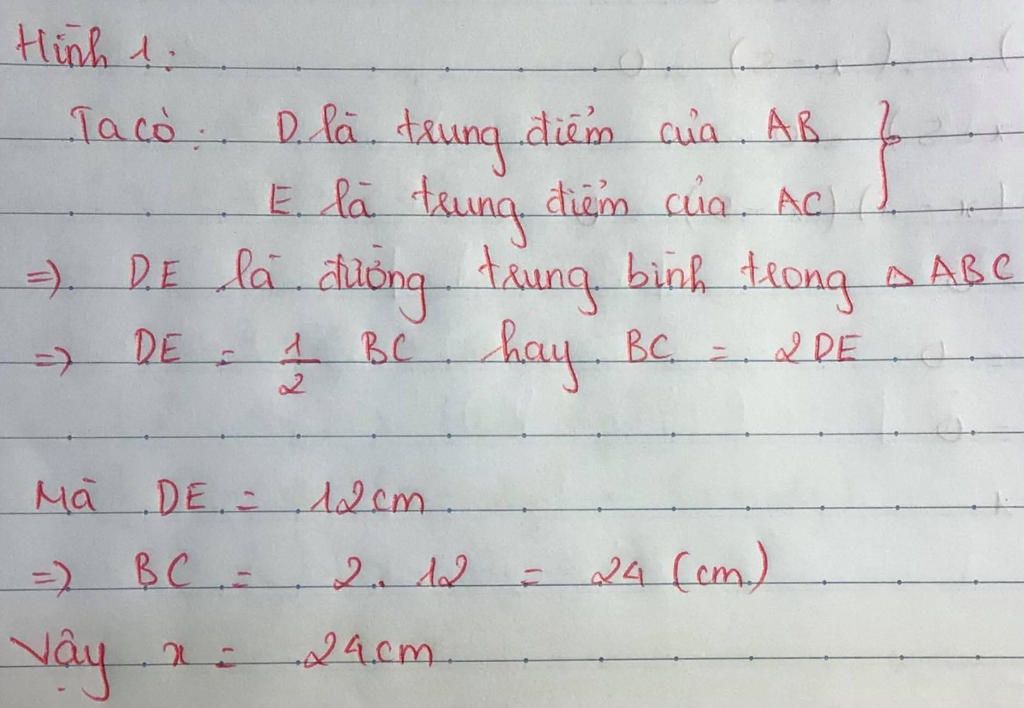 Hình 1:
Ta có: D là trung điểm của AB }
E là trung điểm của AC
=> DE là đường trung bình trong △ ABC
=> DE = 1/2 BC hay BC = 2DE
Mà DE = 12cm
=> BC = 2.12 = 24 (cm)
Vậy x = 24cm